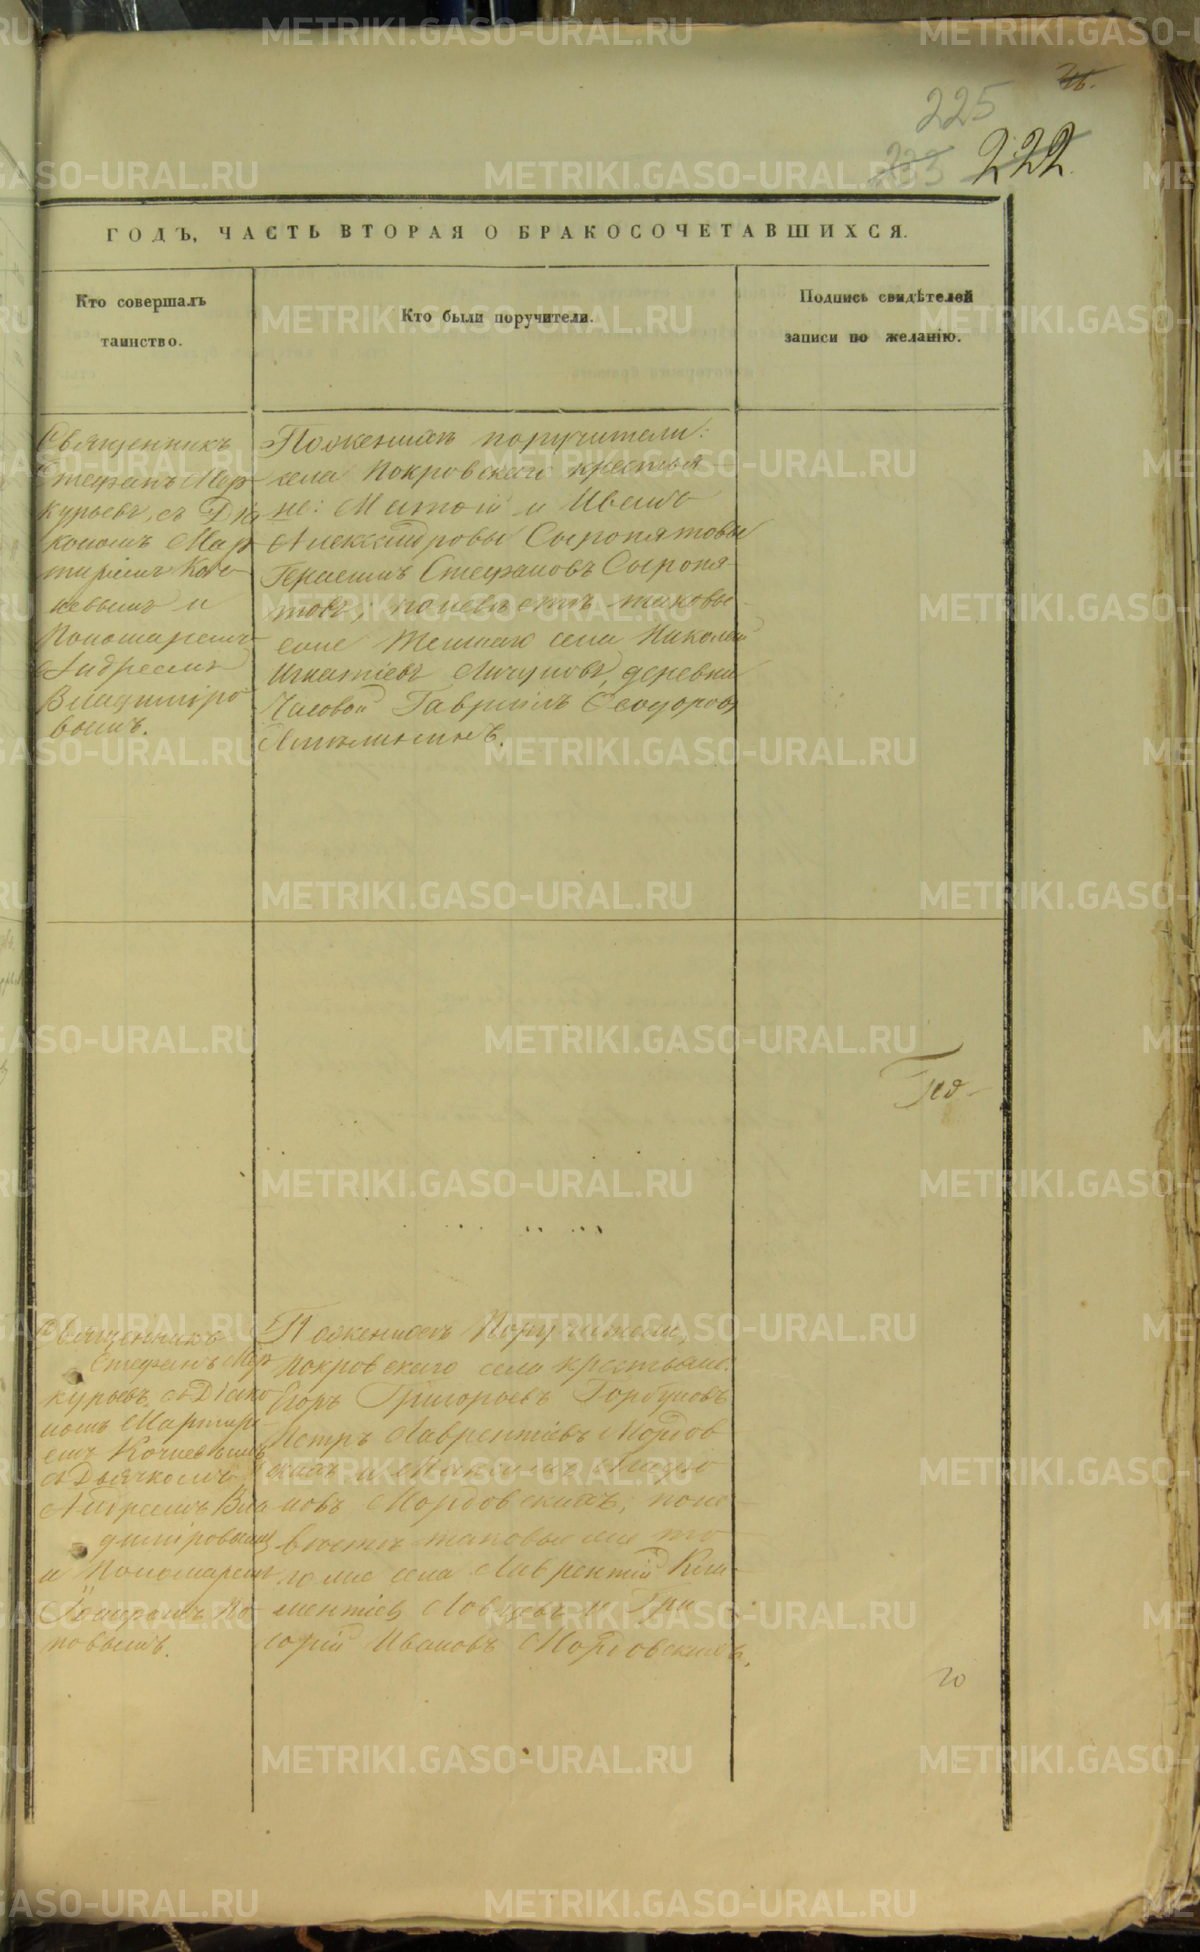 225
222
ГОДЪ, ЧАСТЬ ВТОРАЯ О БРАКОСОЧЕТАВШИХСЯ.
Кто совершалъ
таинство.
Кто были поручители.
Подпись свидѣтелей
записи по желанію.
Священникъ
Стефанъ Мер
курьевъ, съ Діа
кономъ Мар
тиріемъ Коч
невымъ и
Пономаремъ
Андреемъ
Владиміро
вымъ.
По женихѣ поручители:
села Покровскаго крестья
не: Матѳій и Иванъ
Александровы Сыропятовы
Герасимъ Стефановъ Сыропя
товъ; по невѣстѣ таковые
села Николай
Игнатіевъ деревни
Часовой Гавріилъ Ѳеодоровъ
Священникъ
Стефанъ Мер
курьевъ съ Діако
номъ Мартирі
емъ Кочневымъ
съ Дьячкомъ
Андреемъ Вла
диміровымъ
и Пономаремъ
По
повымъ.
По женихѣ Поручители,
Покровскаго села крестьяне:
Егоръ Григорьевъ Горбуновъ
Петръ Лаврентіевъ Мордов
скихъ и Максимъ
новъ Мордовскихъ; по не
вѣстѣ таковые же то
го же села Лаврентій Кли
ментіевъ и Гри
горій Ивановъ Мордовскихъ.
METRIKI.GASO-URAL.RU